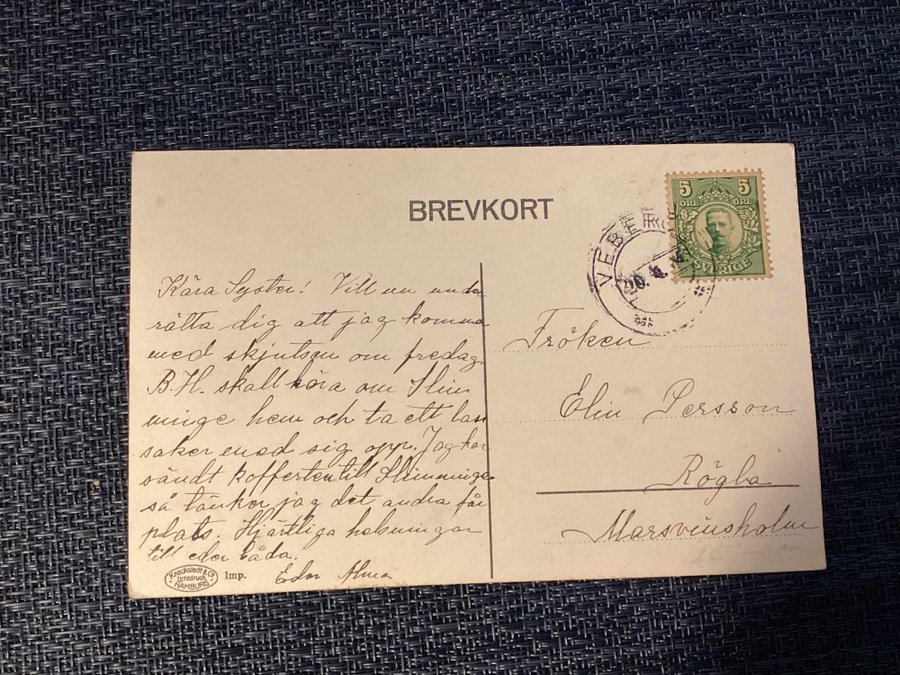 BREVKORT
5 5
ÖRE ÖRE
SVERIGE
VEBERÖD
20. 4. 14
Kära Syster! Vill nu unde
rätta dig att jag komma
med skjutsen om fredag
B.H. skall köra om Slim
minge hem och ta ett lass
saker med sig opp. Jag har
sändt kofferten till Slimminge
så tänker jag det andra får
plats. Hjärtliga helsningar
till eder båda.
Eder Alma
Fröken
Elin Persson
Rögla
Marsvinsholm
Knackstedt & Co
Lichtdruck
HAMBURG
Imp.